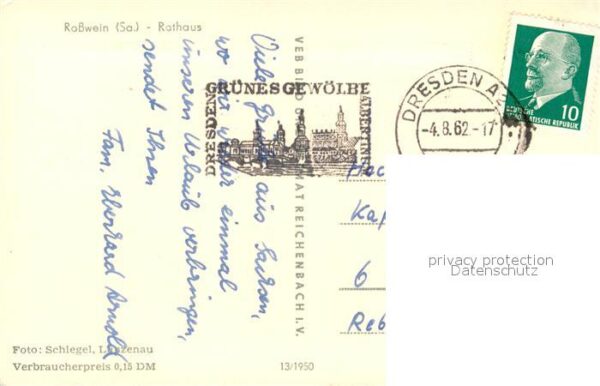 Roßwein (Sa.) - Rathaus
Viele Grüße aus Sachsen,
wo wir wieder einmal
unseren Urlaub verbringen,
sendet Ihnen
Fam. Eberhard Arnold
VEB BILD HEIMAT REICHENBACH I. V.
GRÜNES GEWÖLBE
DRESDEN
ALBERTINUM
DRESDEN A
-4.8.62.-17
10
DEUTSCHE
DEMOKRATISCHE REPUBLIK
6
privacy protection
Datenschutz
Foto: Schlegel, Lunzenau
Verbraucherpreis 0,15 DM
13/1950